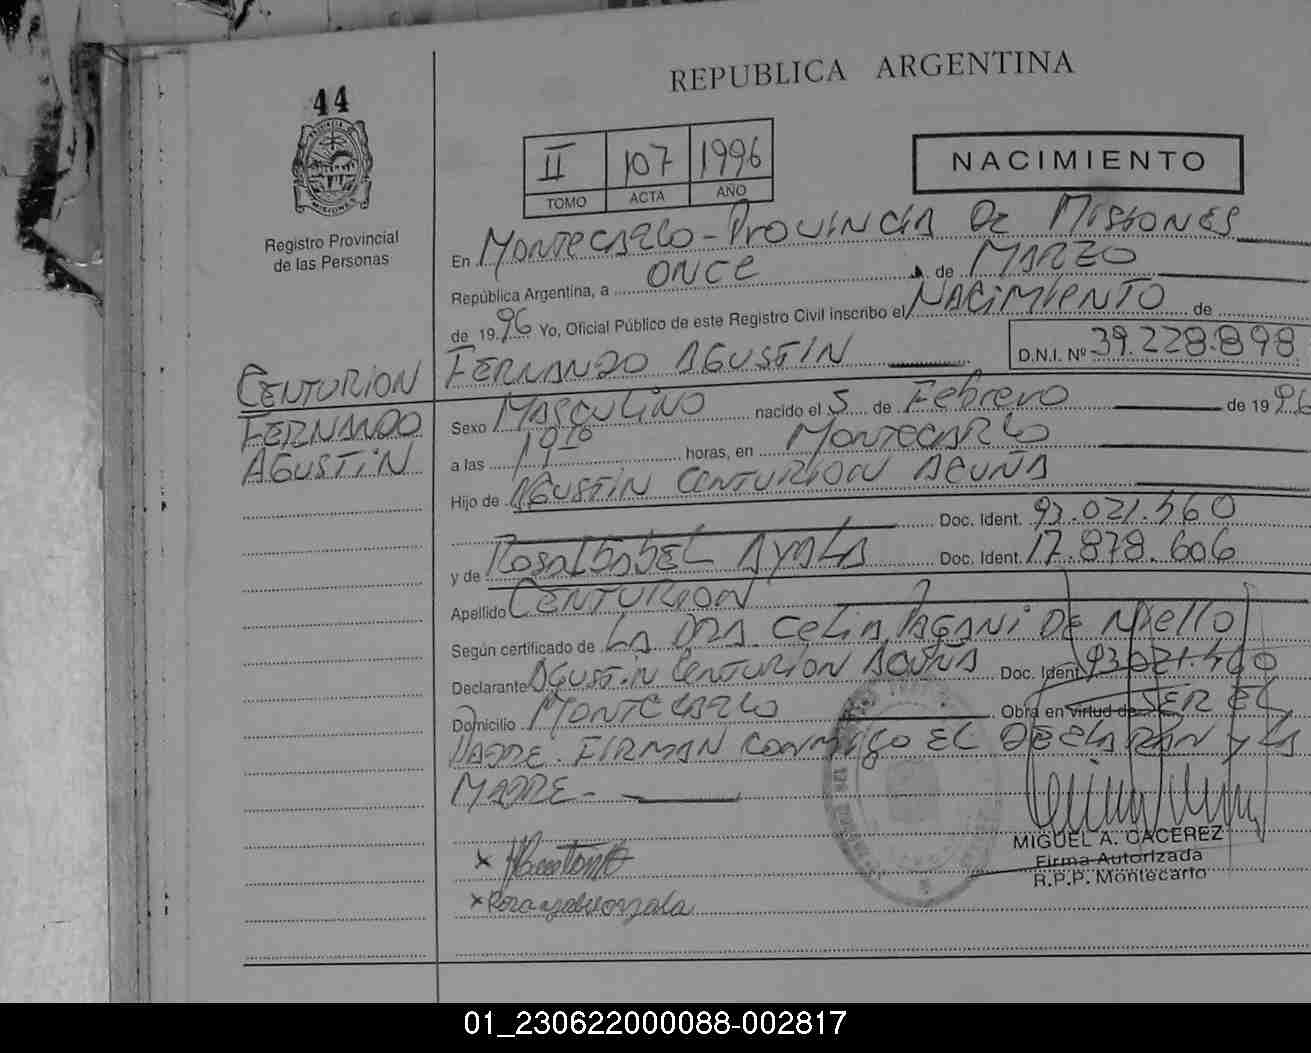 44
REPUBLICA ARGENTINA
II 107 1996
TOMO ACTA AÑO
NACIMIENTO
MISIONES
Registro Provincial
de las Personas
En MONTECARLO - PROVINCIA DE MISIONES
República Argentina, a ONCE de MARZO
de 1996 Yo, Oficial Público de este Registro Civil inscribo el NACIMIENTO de
FERNANDO AGUSTIN D.N.I. Nº 39.228.898
CENTURION
FERNANDO
AGUSTIN
Sexo MASCULINO nacido el 5 de Febrero de 1996
a las 19 10 horas, en MONTECARLO
Hijo de AGUSTIN CENTURION ACUÑA
Doc. Ident. 93.021.560
y de ROSA ISABEL AYALA Doc. Ident. 17.878.606
Apellido CENTURION
Según certificado de LA DRA. Celia PAGANI DE
Declarante AGUSTIN CENTURION ACUÑA Doc. Ident. 93.021.560
Domicilio MONTECARLO Obra en virtud de SER EL
PADRE. FIRMAN CONMIGO EL DECLARAN y LA
MADRE -
MIGUEL A. CACEREZ
Firma Autorizada
R.P.P. Montecarlo
01_230622000088-002817